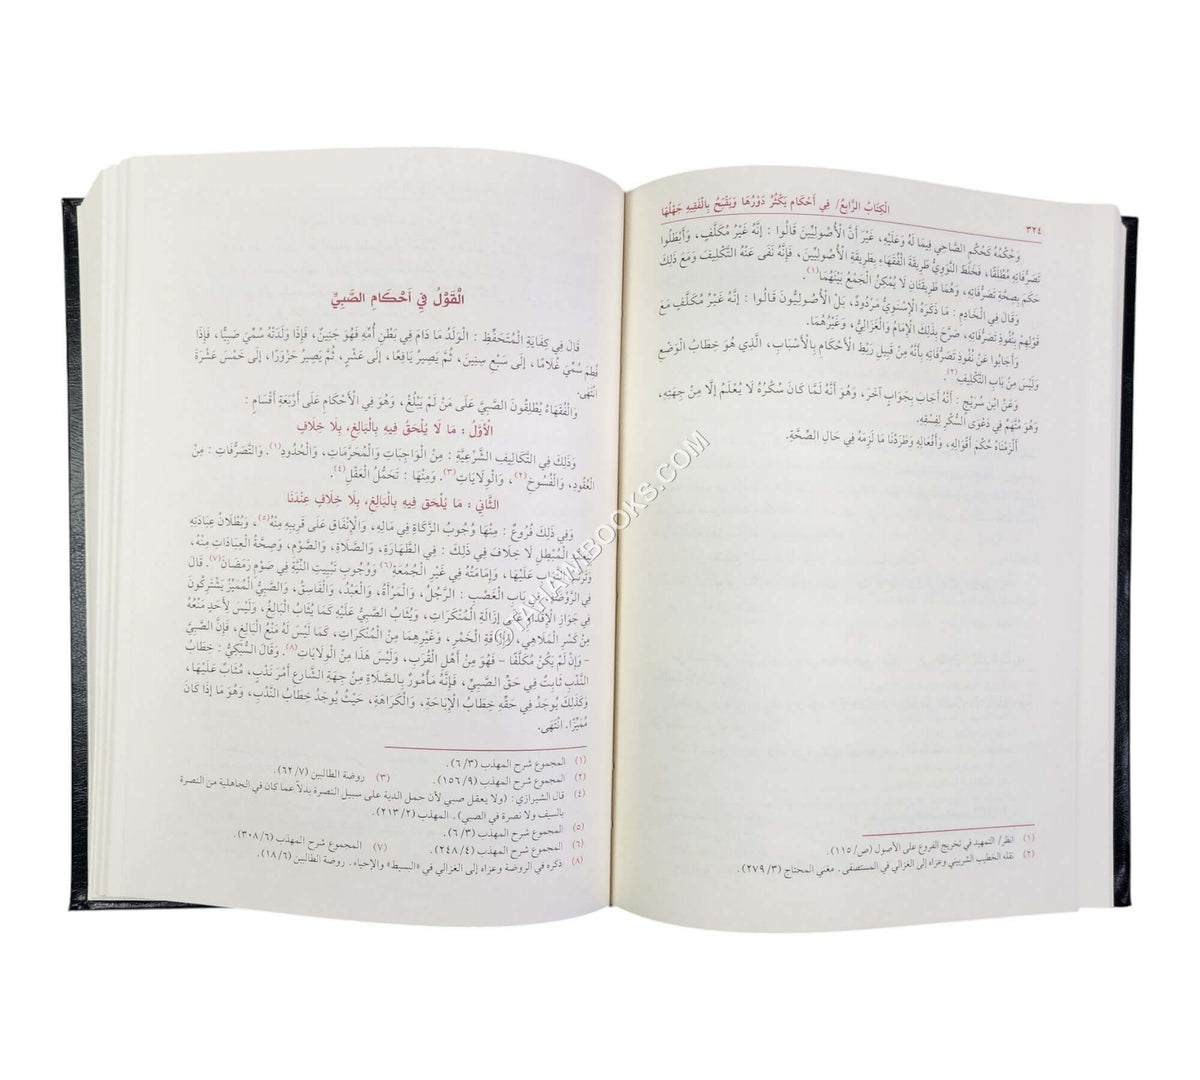 ٣٢٤
الْكِتَابُ الرَّابِعُ/ فِي أَحْكَامٍ يَكْثُرُ دَوْرُهَا وَيَقْبُحُ بِالْفَقِيهِ جَهْلُهَا
وَحُكْمُهُ كَحُكْمِ الصَّاحِي فِيمَا لَهُ وَعَلَيْهِ، غَيْرَ أَنَّ الْأُصُولِيِّينَ قَالُوا : إِنَّهُ غَيْرُ مُكَلَّفٍ، وَأَبْطَلُوا
تَصَرُّفَاتِهِ مُطْلَقًا، فَخَلَطَ النَّوَوِيُّ طَرِيقَةَ الْفُقَهَاءِ بِطَرِيقَةِ الْأُصُولِيِّينَ، فَإِنَّهُ نَفَى عَنْهُ التَّكْلِيفَ وَمَعَ ذَلِكَ
حَكَمَ بِصِحَّةِ تَصَرُّفَاتِهِ، وَهُمَا طَرِيقَتَانِ لَا يُمْكِنُ الْجَمْعُ بَيْنَهُمَا(١).
وَقَالَ فِي الْخَادِمِ : مَا ذَكَرَهُ الْإِسْنَوِيُّ مَرْدُودٌ، بَلْ الْأُصُولِيُّونَ قَالُوا : إنَّهُ غَيْرُ مُكَلَّفٍ مَعَ
قَوْلِهِمْ بِنُفُوذِ تَصَرُّفَاتِهِ، صَرَّحَ بِذَلِكَ الْإِمَامُ وَالْغَزَالِيُّ، وَغَيْرُهُمَا.
وَأَجَابُوا عَنْ نُفُوذِ تَصَرُّفَاتِهِ بِأَنَّهُ مِنْ قَبِيلِ رَبْطِ الْأَحْكَامِ بِالْأَسْبَابِ، الَّذِي هُوَ خِطَابُ الْوَضْعِ
وَلَيْسَ مِنْ بَابِ التَّكْلِيفِ(٢).
وَعَنْ ابْنِ سُرَيْجٍ : أَنَّهُ أَجَابَ بِجَوَابٍ آخَرَ، وَهُوَ أَنَّهُ لَمَّا كَانَ سُكْرُهُ لَا يُعْلَمُ إلَّا مِنْ جِهَتِهِ،
وَهُوَ مُتَّهَمٌ فِي دَعْوَى السُّكْرِ لِفِسْقِهِ.
أَلْزَمْنَاهُ حُكْمَ أَقْوَالِهِ، وَأَفْعَالِهِ وَطَرَدْنَا مَا لَزِمَهُ فِي حَالِ الصِّحَّةِ.
(١) انظر/ التمهيد في تخريج الفروع على الأصول (ص/ ١١٥).
(٢) نقله الخطيب الشربيني وعزاه إلى الغزالي في المستصفى. مغني المحتاج (٣/ ٢٧٩).
الْقَوْلُ فِي أَحْكَامِ الصَّبِيِّ
قَالَ فِي كِفَايَةِ الْمُتَحَفِّظِ : الْوَلَدُ مَا دَامَ فِي بَطْنِ أُمِّهِ فَهُوَ جَنِينٌ، فَإِذَا وَلَدَتْهُ سُمِّيَ صَبِيًّا، فَإِذَا
فُطِمَ سُمِّيَ غُلَامًا، إلَى سَبْعِ سِنِينَ، ثُمَّ يَصِيرُ يَافِعًا، إلَى عَشْرٍ، ثُمَّ يَصِيرُ حَزْوَرًا، إلَى خَمْسَ عَشْرَةَ
انْتَهَى.
وَالْفُقَهَاءُ يُطْلِقُونَ الصَّبِيَّ عَلَى مَنْ لَمْ يَبْلُغْ، وَهُوَ فِي الْأَحْكَامِ عَلَى أَرْبَعَةِ أَقْسَامٍ :
الْأَوَّلُ : مَا لَا يُلْحَقُ فِيهِ بِالْبَالِغِ، بِلَا خِلَافٍ
وَذَلِكَ فِي التَّكَالِيفِ الشَّرْعِيَّةِ : مِنْ الْوَاجِبَاتِ وَالْمُحَرَّمَاتِ، وَالْحُدُودِ(١). وَالتَّصَرُّفَاتِ : مِنْ
الْعُقُودِ، وَالْفُسُوخِ(٢)، وَالْوِلَايَاتِ(٣). وَمِنْهَا : تَحَمُّلُ الْعَقْلِ(٤).
الثَّانِي : مَا يُلْحَقُ فِيهِ بِالْبَالِغِ، بِلَا خِلَافٍ عِنْدَنَا
وَفِي ذَلِكَ فُرُوعٌ : مِنْهَا وُجُوبُ الزَّكَاةِ فِي مَالِهِ، وَالْإِنْفَاقِ عَلَى قَرِيبِهِ مِنْهُ(٥)، وَبُطْلَانُ عِبَادَتِهِ
الْمُبْطِلِ لَا خِلَافَ فِي ذَلِكَ : فِي الطَّهَارَةِ، وَالصَّلَاةِ، وَالصَّوْمِ، وَصِحَّةُ الْعِبَادَاتِ مِنْهُ،
عَلَيْهَا، وَإِمَامَتُهُ فِي غَيْرِ الْجُمُعَةِ(٦) وَوُجُوبُ تَبْيِيتِ النِّيَّةِ فِي صَوْمِ رَمَضَانَ(٧). قَالَ
فِي الرَّوْضَةِ بَابِ الْغَصْبِ : الرَّجُلُ، وَالْمَرْأَةُ، وَالْعَبْدُ، وَالْفَاسِقُ، وَالصَّبِيُّ الْمُمَيِّزُ يَشْتَرِكُونَ
فِي جَوَازِ الْإِقْدَامِ عَلَى إزَالَةِ الْمُنْكَرَاتِ، وَيُثَابُ الصَّبِيُّ عَلَيْهِ كَمَا يُثَابُ الْبَالِغُ، وَلَيْسَ لِأَحَدٍ مَنْعُهُ
مِنْ كَسْرِ الْمَلَاهِي، الْخَمْرِ، وَغَيْرِهِمَا مِنْ الْمُنْكَرَاتِ، كَمَا لَيْسَ لَهُ مَنْعُ الْبَالِغِ، فَإِنَّ الصَّبِيَّ
- وَإِنْ لَمْ يَكُنْ مُكَلَّفًا - فَهُوَ مِنْ أَهْلِ الْقُرَبِ، وَلَيْسَ هَذَا مِنْ الْوِلَايَاتِ(٨). وَقَالَ السُّبْكِيُّ : خِطَابُ
النَّدْبِ ثَابِتٌ فِي حَقِّ الصَّبِيِّ، فَإِنَّهُ مَأْمُورٌ بِالصَّلَاةِ مِنْ جِهَةِ الشَّارِعِ أَمْرَ نَدْبٍ، مُثَابٌ عَلَيْهَا،
وَكَذَلِكَ يُوجَدُ فِي حَقِّهِ خِطَابُ الْإِبَاحَةِ، وَالْكَرَاهَةِ، حَيْثُ يُوجَدُ خِطَابُ النَّدْبِ، وَهُوَ مَا إذَا كَانَ
مُمَيِّزًا. انْتَهَى.
(١) المجموع شرح المهذب (٣/ ٦).
(٢) المجموع شرح المهذب (٩/ ١٥٦). (٣) روضة الطالبين (٧/ ٦٢).
(٤) قال الشيرازي : (ولا يعقل صبي لأن حمل الدية على سبيل النصرة بدلاً عما كان في الجاهلية من النصرة
بالسيف ولا نصرة في الصبي). المهذب (٢/ ٢١٣).
(٥) المجموع شرح المهذب (٣/ ٦).
(٦) المجموع شرح المهذب (٤/ ٢٤٨). (٧) المجموع شرح المهذب (٦/ ٣٠٨).
(٨) ذكره في الروضة وعزاه إلى الغزالي في «البسيط» والإحياء. روضة الطالبين (٦/ ١٨).
TAHAWIBOOKS.COM